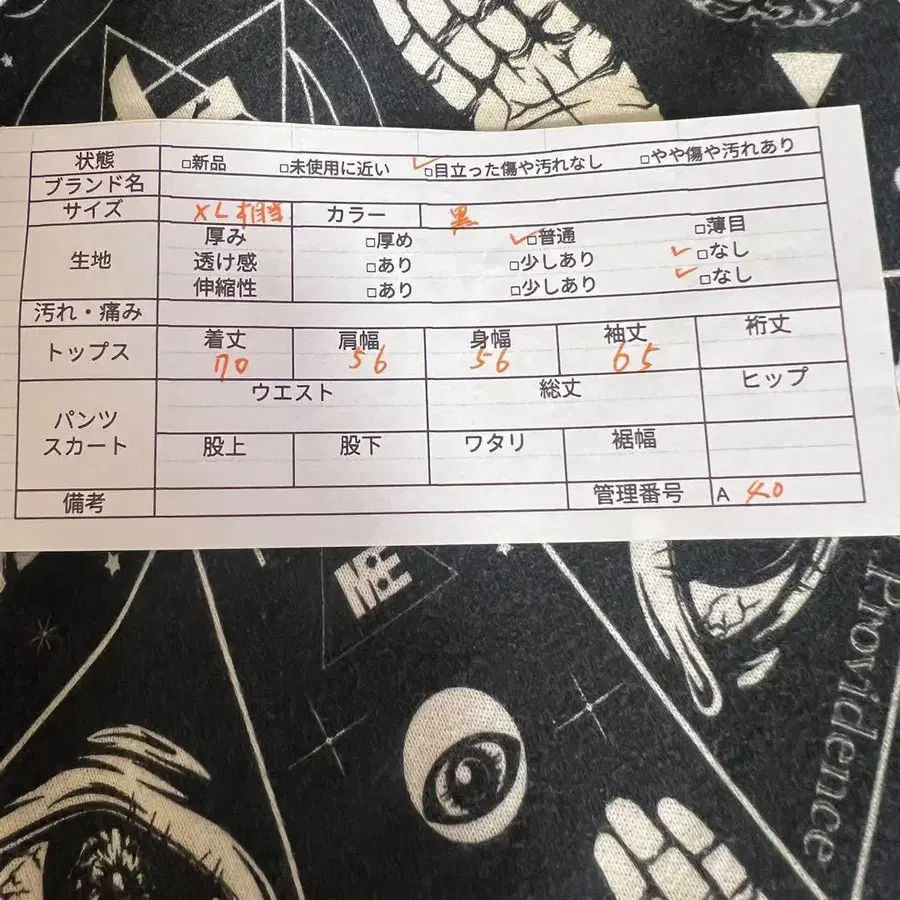 状態 □新品 □未使用に近い ✓□目立った傷や汚れなし □やや傷や汚れあり
ブランド名
サイズ XL相当 カラー 黒
生地 厚み □厚め ✓□普通 □薄目
透け感 □あり □少しあり ✓□なし
伸縮性 □あり □少しあり ✓□なし
汚れ・痛み
トップス 着丈 肩幅 身幅 袖丈 裄丈
70 56 56 65
パンツ スカート ウエスト 総丈 ヒップ
股上 股下 ワタリ 裾幅
備考 管理番号 A 40
M:E
Providence